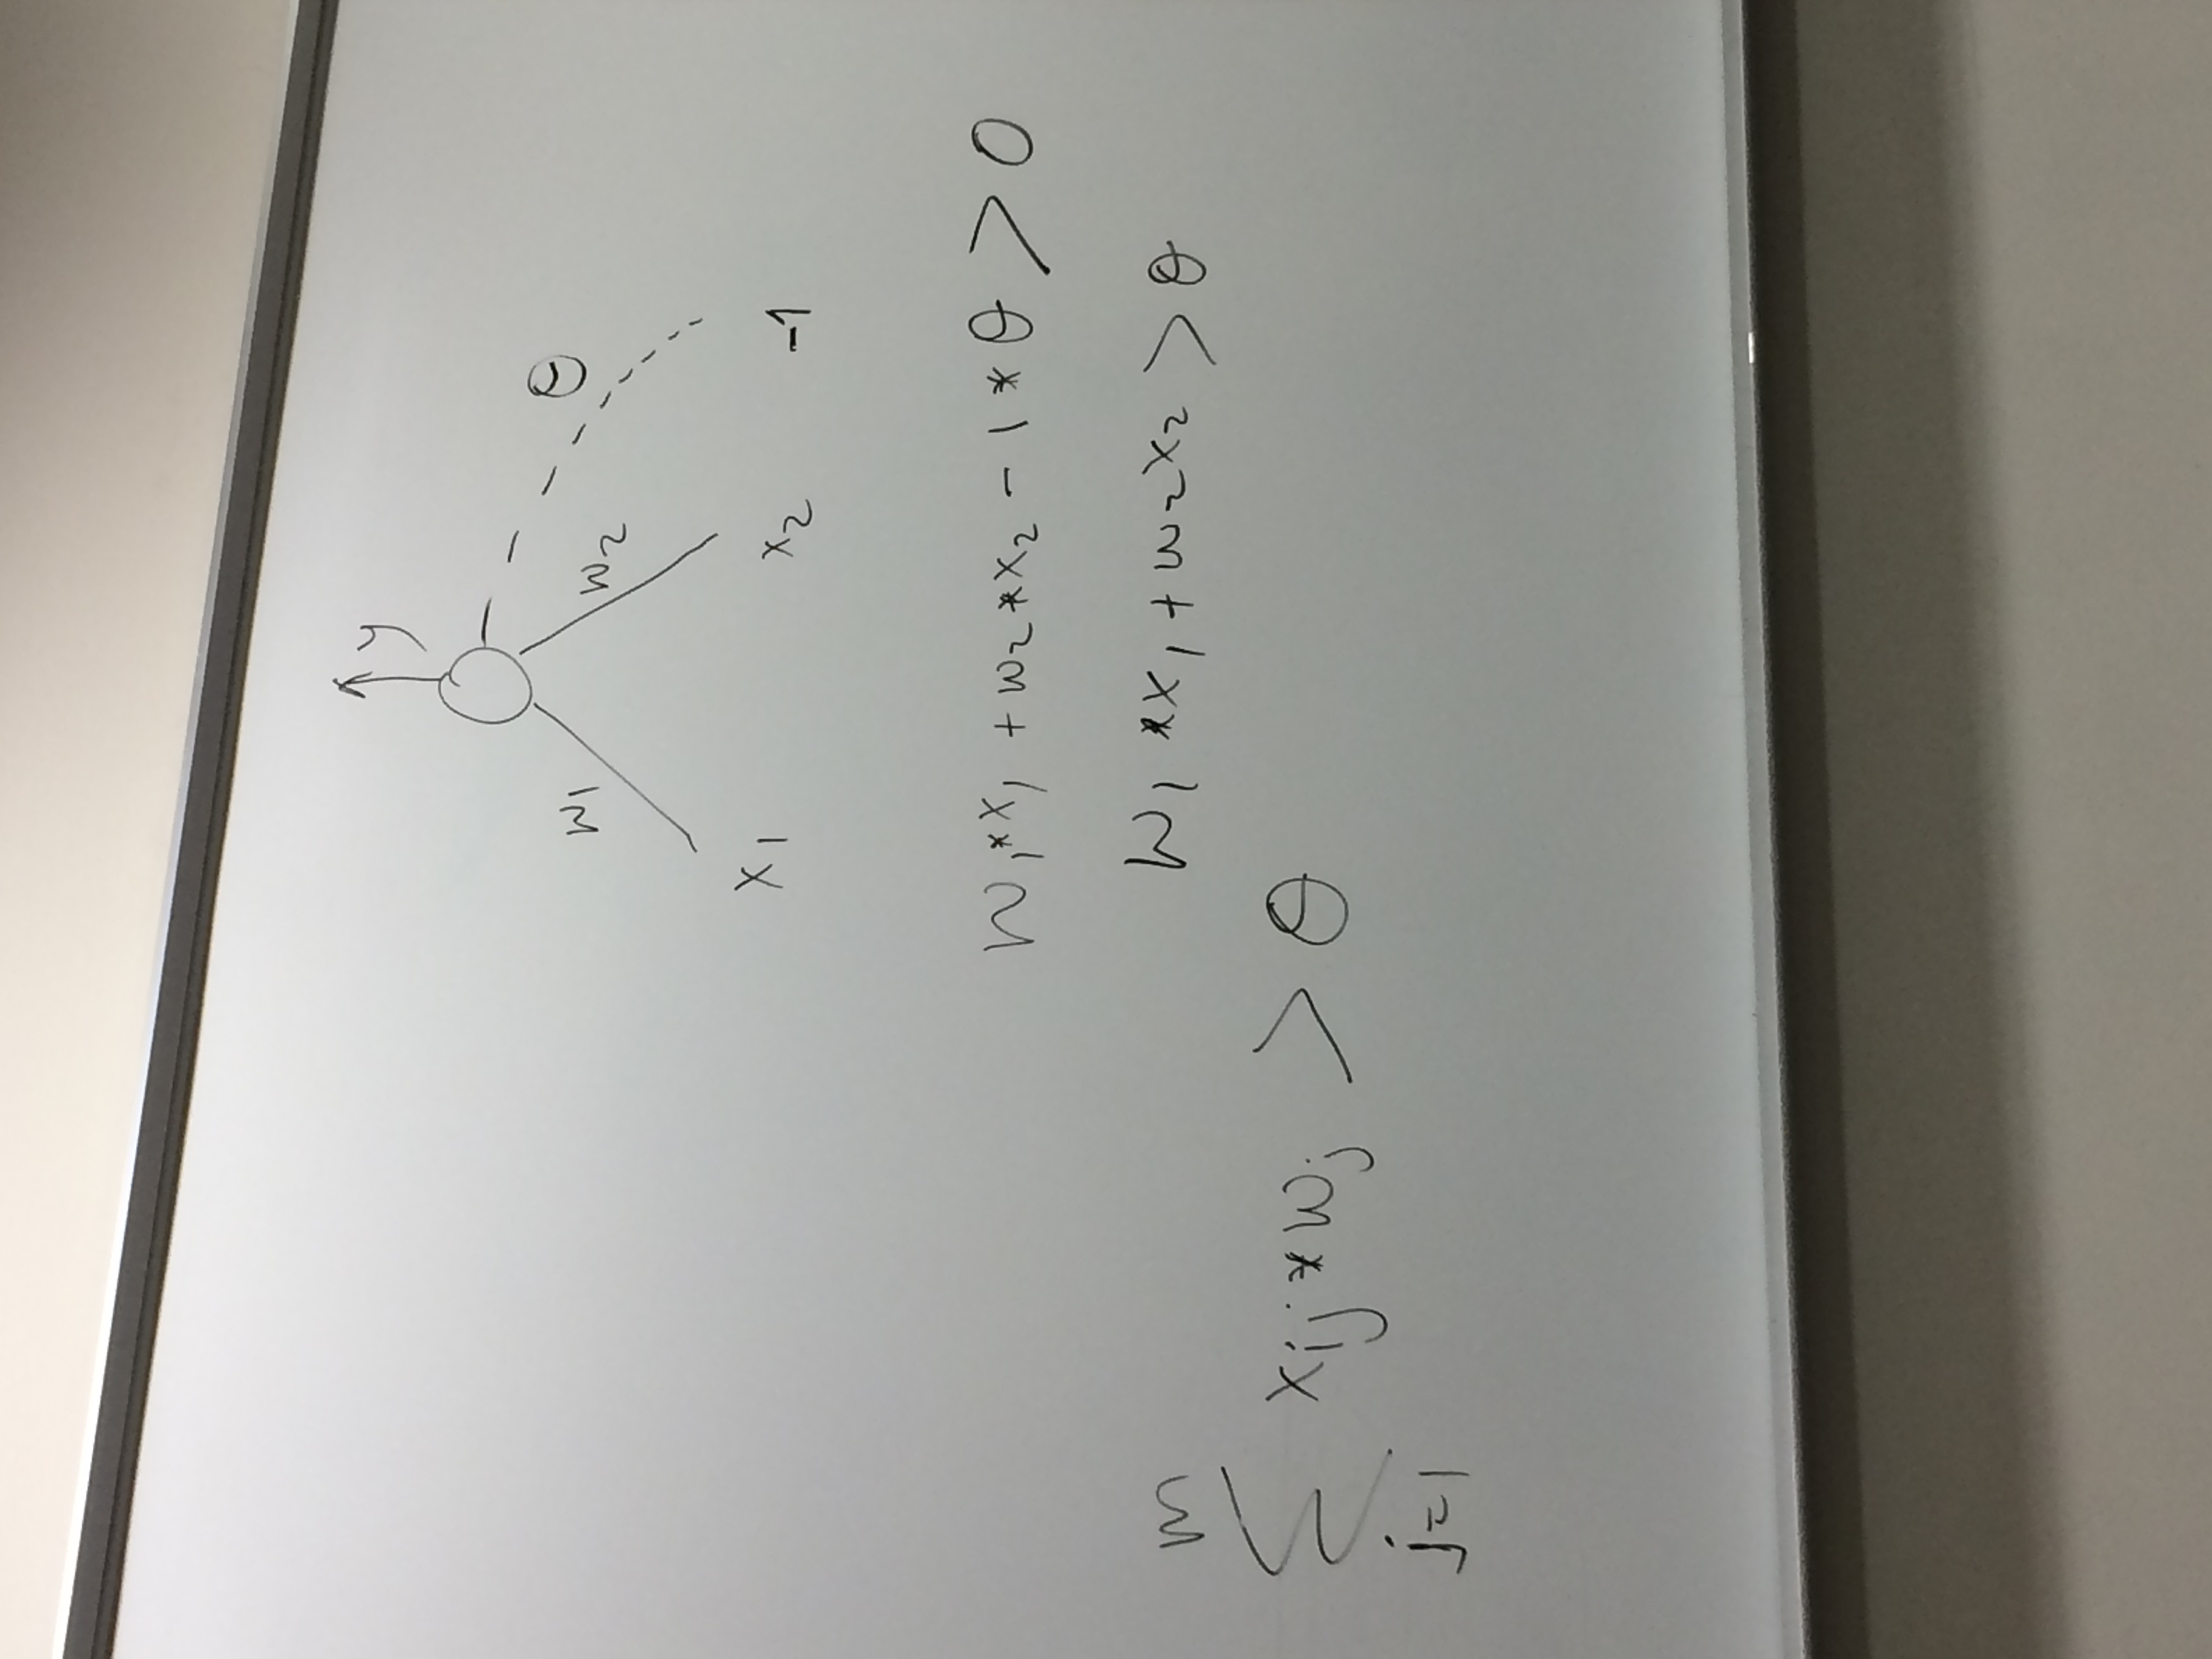 y
θ
w₁
w₂
x₁
x₂
-1
w₁*x₁ + w₂*x₂ - 1*θ > 0
w₁ *x₁ + w₂x₂ > θ
m
∑ xᵢⱼ*wⱼ > θ
j=1